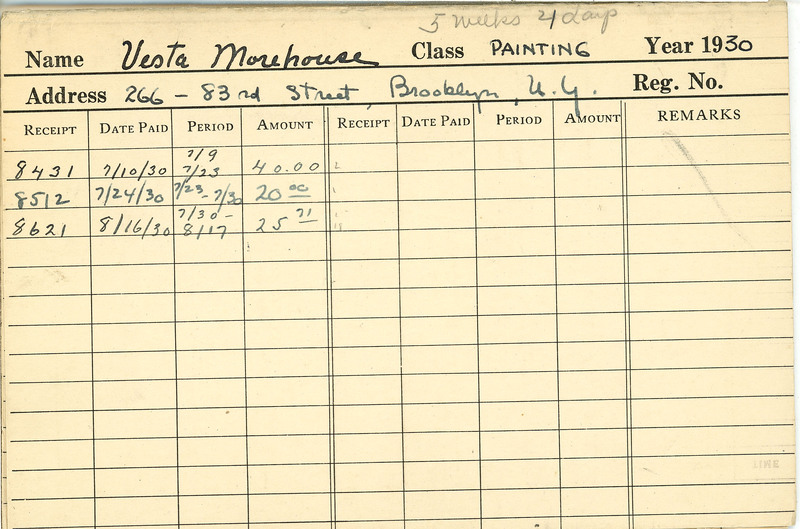 5 weeks 4 days
Name Vesta Morehouse Class PAINTING Year 1930
Address 266 - 83rd Street, Brooklyn, N.Y. Reg. No.
RECEIPT DATE PAID PERIOD AMOUNT RECEIPT DATE PAID PERIOD AMOUNT REMARKS
7/9
8431 7/10/30 7/23 40.00
8512 7/24/30 7/23 - 7/30 20 00
7/30 -
8621 8/16/30 8/17 25 71